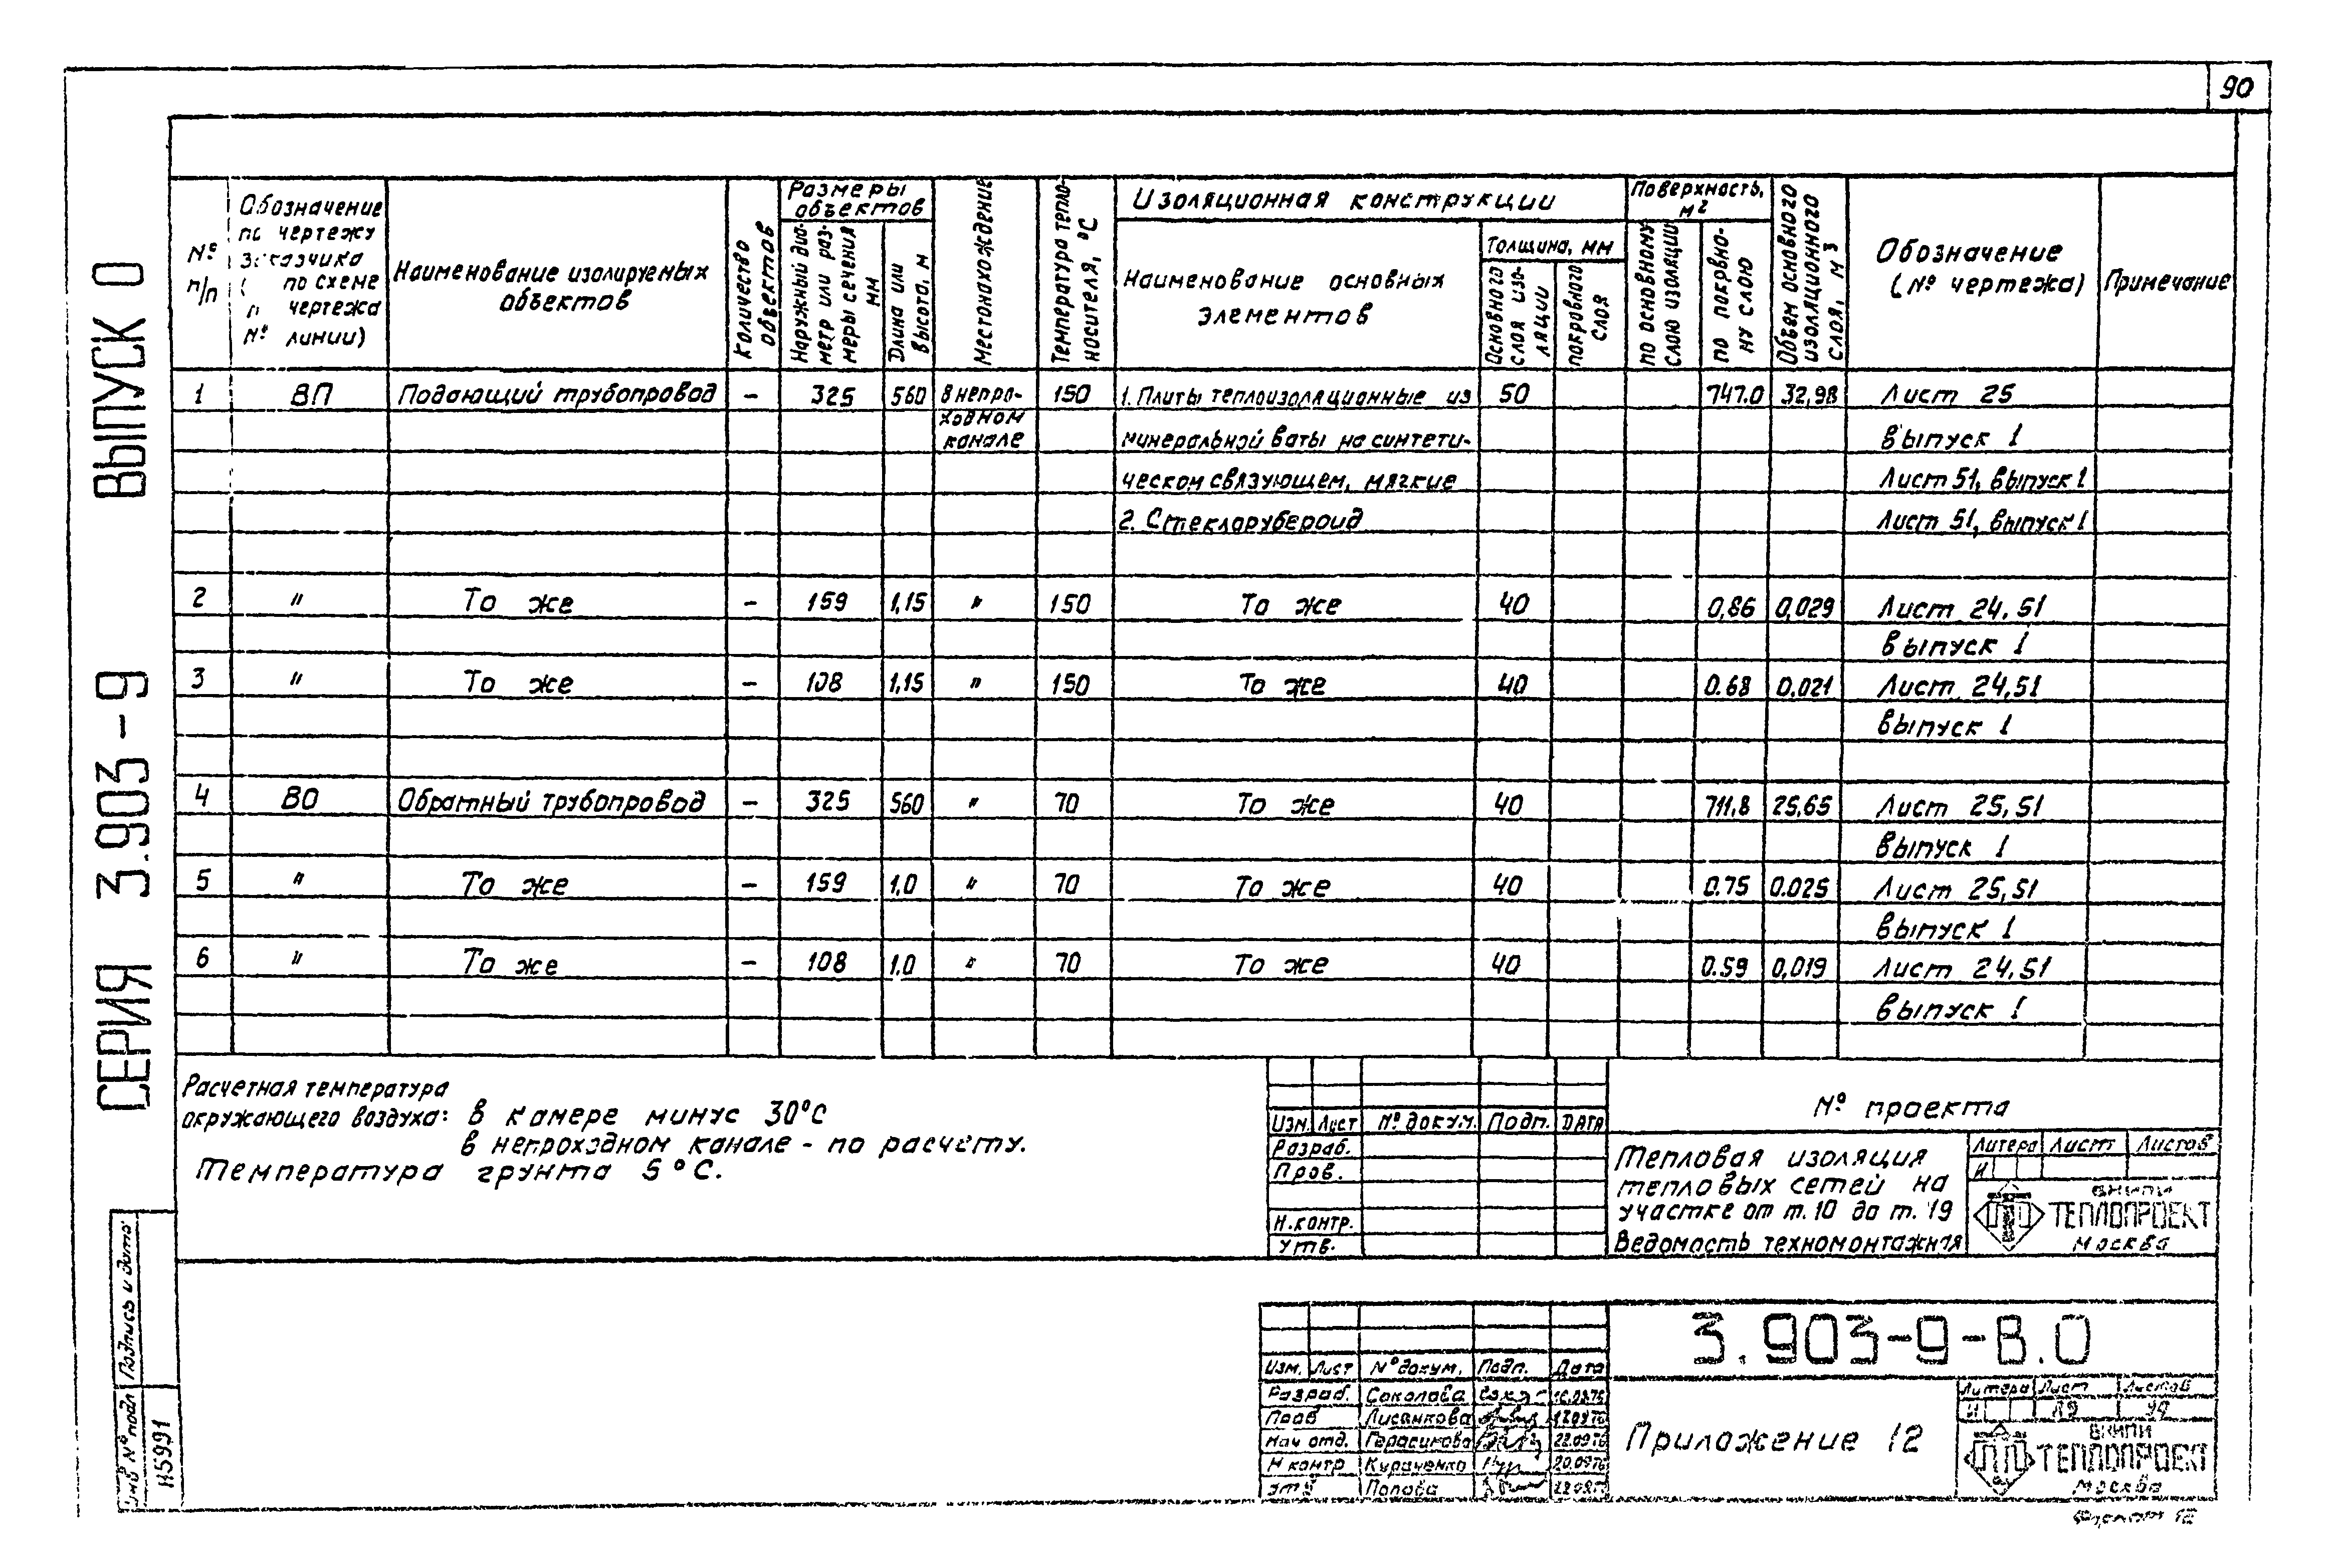 90
СЕРИЯ 3.903-9 ВЫПУСК 0
№ п/п
Обозначение
по чертежу
заказчика
по схеме
чертежа
№ линии)
Наименование изолируемых
объектов
Количество
объектов
Размеры
объектов
Наружный диа-
метр или раз-
меры сечения
мм
Длина или
высота, м
Местонахождение
Температура тепло-
носителя, °С
Изоляционная конструкции
Наименование основных
элементов
Толщина, мм
Основного
слоя изо-
ляции
покровного
слоя
Поверхность,
м2
по основному
слою изоляции
по покрвно-
му слою
Объем основного
изоляционного
слоя, м3
Обозначение
(№ чертежа)
Примечание
1 ВП Подающий трубопровод – 325 560 В непро- 150 1. Плиты теплоизоляционные из 50 747.0 32,98 Лист 25
ходном
канале минеральной ваты на синтети- выпуск 1
ческом связующем, мягкие Лист 51, выпуск 1
2. Стеклорубероид Лист 51, выпуск 1
2 " То же – 159 1,15 " 150 То же 40 0,86 0,029 Лист 24,51
выпуск 1
3 " То же – 108 1,15 " 150 То же 40 0.68 0,021 Лист 24,51
выпуск 1
4 ВО Обратный трубопровод – 325 560 " 70 То же 40 711,8 25,65 Лист 25,51
выпуск 1
5 " То же – 159 1.0 " 70 То же 40 0.75 0.025 Лист 25,51
выпуск 1
6 " То же – 108 1.0 " 70 То же 40 0.59 0,019 Лист 24,51
выпуск 1
Расчетная температура
окружающего воздуха: в камере минус 30°С
в непроходном канале - по расчету.
Температура грунта 5°С.
Изм. Лист № докум. Подп. Дата
Разраб.
Пров.
Н.контр.
Утв.
№ проекта
Тепловая изоляция
тепловых сетей на
участке от т.10 до т.19
Ведомость техномонтажная
Литера Лист Листов
И
ВНИПИ
ТЕПЛОПРОЕКТ
Москва
Подпись и дата
Инв № подл
Н5991
Изм. Лист № докум. Подп. Дата
Разраб. Соколова
Проб Лисенкова
Нач отд. Герасимова 22.09.76
Н контр Кураченко 20.09.76
Утв Попова
3.903-9-В.0
Приложение 12
Литера Лист Листов
И 89
ВНИПИ
ТЕПЛОПРОЕКТ
Москва
Формат 12